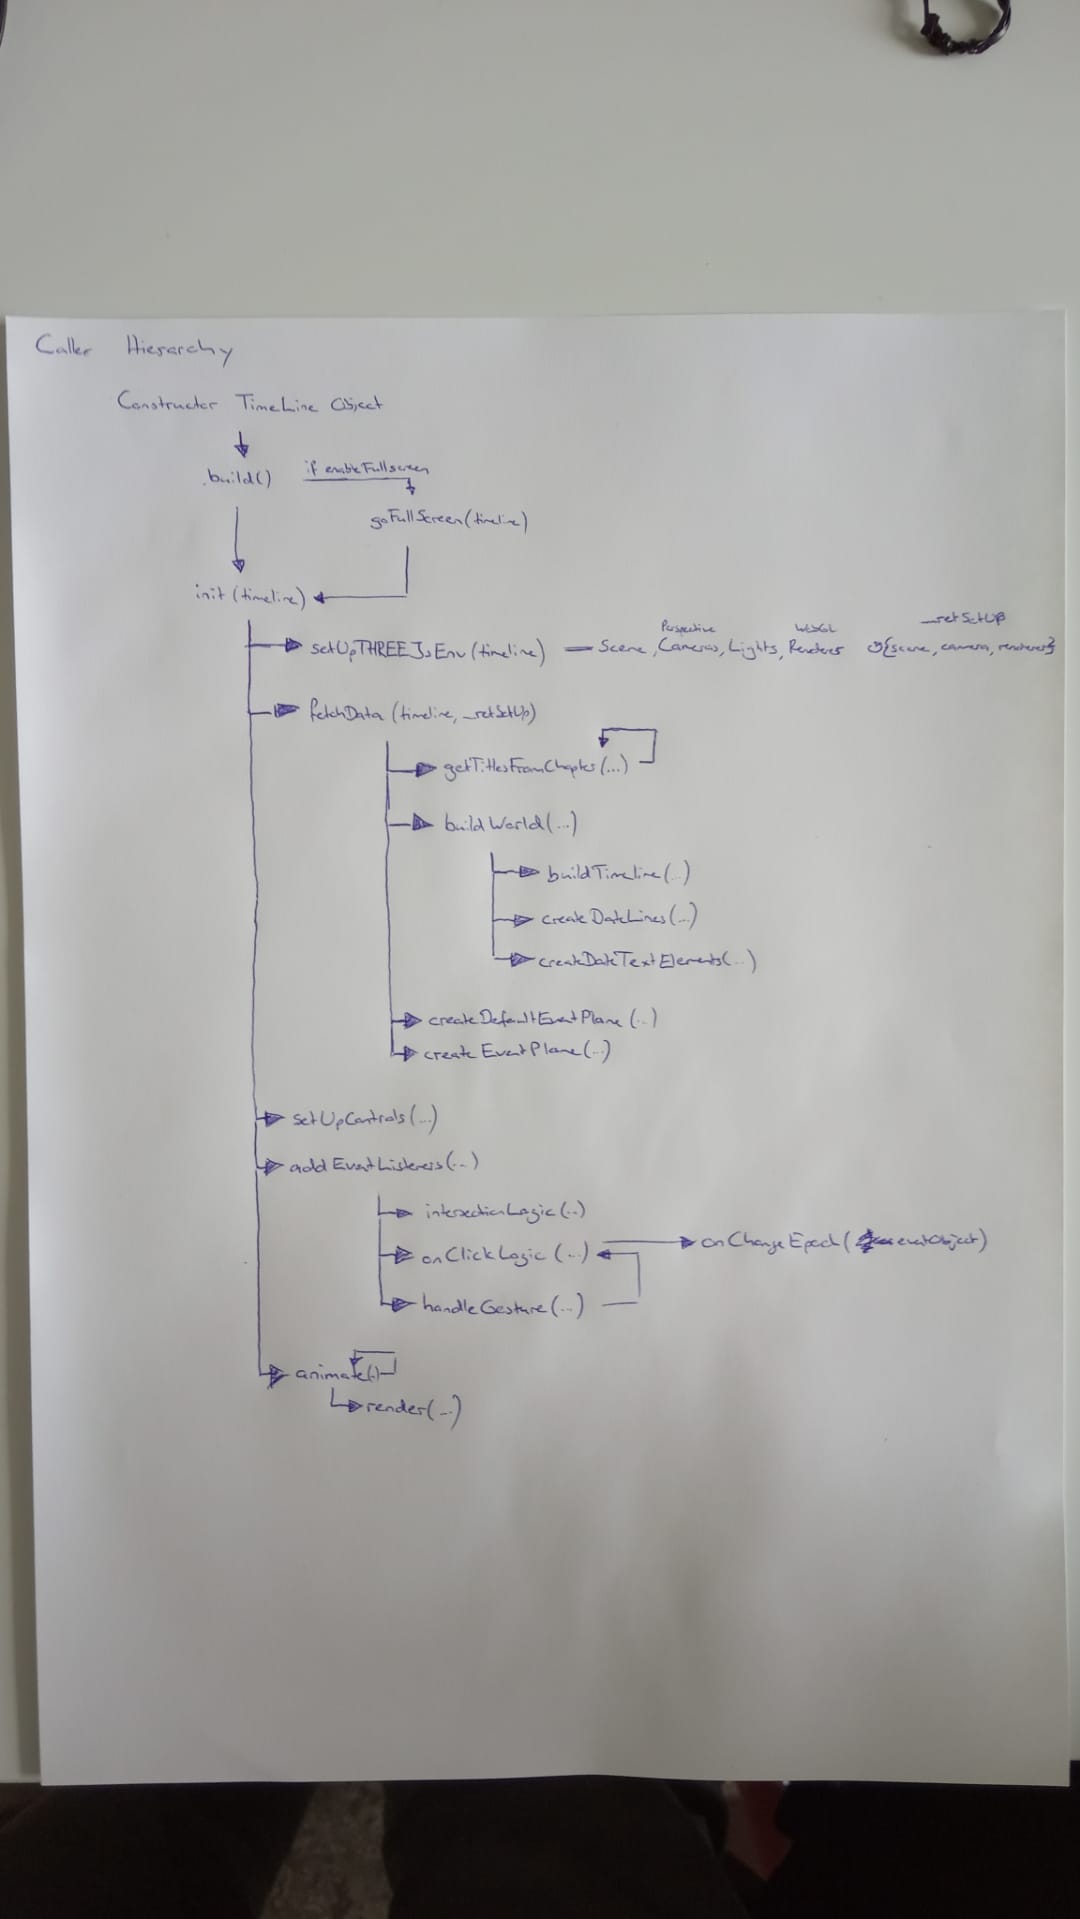 Caller Hierarchy
Constructor TimeLine Object
.build() if enableFullscreen
goFullScreen(timeline)
init(timeline)
Perspective WebGL _retSetUp
setUpTHREEJsEnv(timeline) Scene, Cameras, Lights, Renderer {scene, camera, renderer}
fetchData (timeline, _retSetUp)
getTitlesFromChapter(...)
buildWorld(...)
buildTimeline(..)
createDateLines(...)
createDateTextElements(...)
createDefaultEventPlane(..)
createEventPlane(...)
setUpControls(...)
addEventListeners(...)
intersectionLogic(...)
onClickLogic (...) onChangeEpoch( eventObject)
handleGesture(...)
animate(.)
render(...)